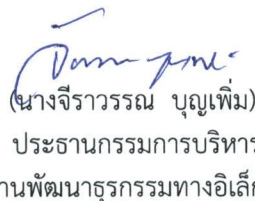 (นางจีราวรรณ บุญเพิ่ม)
ประธานกรรมการบริหาร
านพัฒนาธุรกรรมทางอิเล็ก